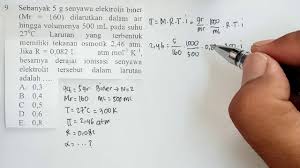 9. Sebanyak 5 g senyawa elektrolit biner
(Mr = 160) dilarutkan dalam air
hingga volumenya 500 mL pada suhu
27°C. Larutan yang terbentuk
memiliki tekanan osmotik 2,46 atm.
Jika R = 0,082 L atm mol⁻¹ K⁻¹,
besarnya derajat ionisasi senyawa
elektrolit tersebut dalam larutan
adalah ....
A. 0,3
B. 0,4
C. 0,5
D. 0,6
E. 0,8
gr = 5gr Biner → n=2
Mr = 160 ml = 500ml
T = 27°C = 300K
π = 2,46 atm
R = 0,082
α = ...?
π = M.R.T.i = gr/Mr 1000/ml R.T.i
2,46 = 5/160 1000/500